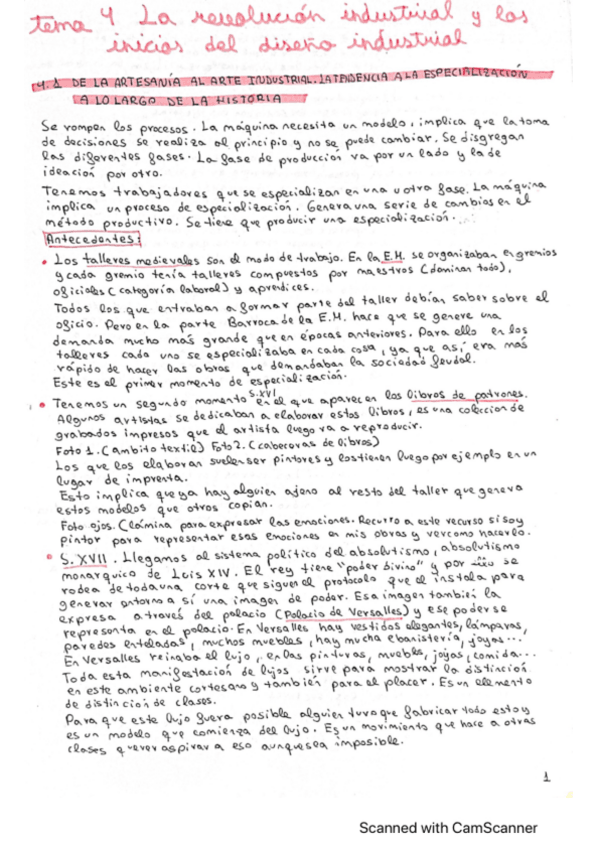 tema 4 La revolución industrial y los
inicios del diseño industrial
4.1 DE LA ARTESANÍA AL ARTE INDUSTRIAL. LA TENDENCIA A LA ESPECIALIZACIÓN
A LO LARGO DE LA HISTORIA
Se rompen los procesos. La máquina necesita un modelo, implica que la toma
de decisiones se realiza al principio y no se puede cambiar. Se disgregan
las diferentes fases. La fase de producción va por un lado y la de
ideación por otro.
Tenemos trabajadores que se especializan en una u otra fase. La máquina
implica un proceso de especialización. Genera una serie de cambios en el
método productivo. Se tiene que producir una especialización.
Antecedentes:
• Los talleres medievales son el modo de trabajo. En la E.M. se organizaban en gremios
y cada gremio tenía talleres compuestos por maestros (dominan todo),
oficiales (categoría laboral) y aprendices.
Todos los que entraban a formar parte del taller debían saber sobre el
oficio. Pero en la parte Barroca de la E.M. hace que se genere una
demanda mucho más grande que en épocas anteriores. Para ello en los
talleres cada uno se especializaba en cada cosa, ya que así, era más
rápido de hacer las obras que demandaban la sociedad feudal.
Este es el primer momento de especialización.
• Tenemos un segundo momento S.XVI en el que aparecen los libros de patrones.
Algunos artistas se dedicaban a elaborar estos libros, es una colección de
grabados impresos que el artista luego va a reproducir.
Foto 1. (ambito textil) Foto 2. (cabeceras de libros)
Los que los elaboran suelen ser pintores y los tienen luego por ejemplo en un
lugar de imprenta.
Esto implica que ya hay alguien ajeno al resto del taller que genera
estos modelos que otros copian.
Foto ojos. (Lámina para expresar las emociones. Recurro a este recurso si soy
pintor para representar esas emociones en mis obras y ver como hacerlo.
• S. XVII. Llegamos al sistema político del absolutismo, absolutismo
monarquico de Luis XIV. El rey tiene "poder divino" y por se
rodea de toda una corte que siguen el protocolo que el instala para
generar entorno a sí una imagen de poder. Esa imagen también la
expresa a través del palacio (Palacio de Versalles) y ese poder se
representa en el palacio. En Versalles hay vestidos elegantes, lámparas,
paredes enteladas, muchos muebles, hay mucha ebanistería, joyas...
En Versalles reinaba el lujo, en las pinturas, muebles, joyas, comida...
Toda esta manifestación de lujos sirve para mostrar la distinción
en este ambiente cortesano y también para el placer. Es un elemento
de distinción de clases.
Para que este lujo fuera posible alguien tuvo que fabricar todo esto y
es un modelo que comienza del lujo. Es un movimiento que hace a otras
clases querer aspirar a eso aunque sea imposible.
1
Scanned with CamScanner